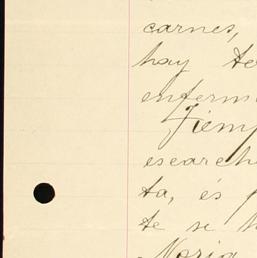 carnes,
hay te
enferm
Tiemp
escarch
ta, és
te se h
Maria